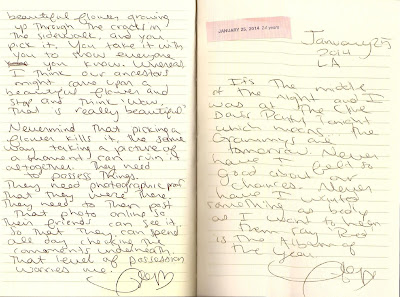 beautiful flower growing
up through the cracks in
the sidewalk, and you
pick it. You take it with
you to show everyone
you know. Whereas
I think our ancestors
might have saw a
beautiful flower and
stop and think "Wow,
that is really beautiful"
Nevermind that picking a
flower kills it, the same
way taking a picture of
a moment can ruin it
altogether. They need
to possess things.
They need photographic proof
that they were there.
They need to then post
that photo online so
their friends can see it
so that they can spend
all day checking the
comments underneath.
That level of possession
worries me.
JANUARY 25, 2014 24 years
January 25
2014
LA
It's the middle
of the night and I
was at the Clive
Davis Party tonight
which means the
Grammys are
tomorrow. Never
have I felt so
good about our
chances. Never
have I wanted
something as badly
as I want to hear
them say Red
is the Album of
the Year.